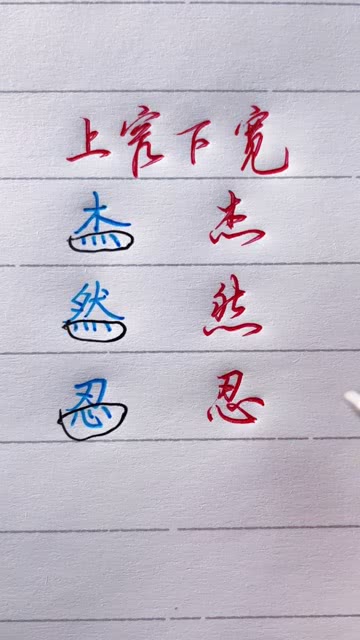 上窄下宽
杰 杰
然 然
忍 忍